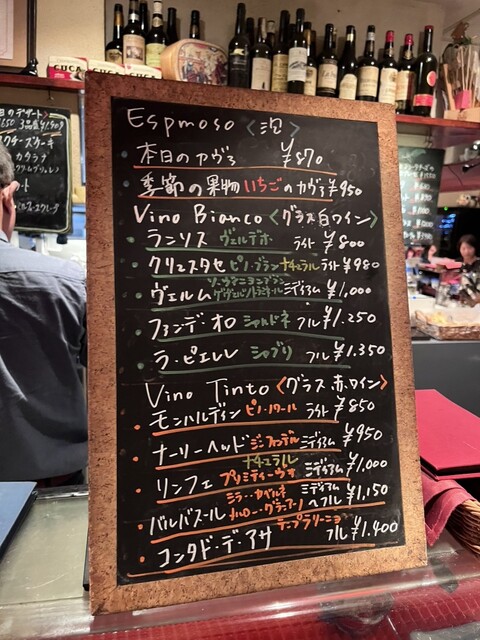 Espmoso <泡>
本日のカヴァ ¥870
季節の果物いちごのカヴァ ¥950
Vino Bianco <グラス白ワイン>
ランソス ヴェルデホ ライト ¥800
クリュスタセ ピノ・ブラン ナチュラル ライト ¥980
ヴェルム ソーヴィニヨンブラン ゲヴュルツトラミネール ミディアム ¥1,000
ファンデ・オロ シャルドネ フル ¥1.250
ラ・ピエレレ シャブリ フル ¥1.350
Vino Tinto <グラス赤ワイン>
モンハルディン ピノ・ノワール ライト ¥850
ナーリーヘッド ジンファンデル ミディアム ¥950
ナチュラル
リンフェ プリミティーヴォ ミディアム ¥1,000
バルバズール シラー・カベルネ ミディアム〜フル ¥1,150
コンタド・デ・アサ テンプラリーニョ フル ¥1.400
CUCA
CUCA
CUCA